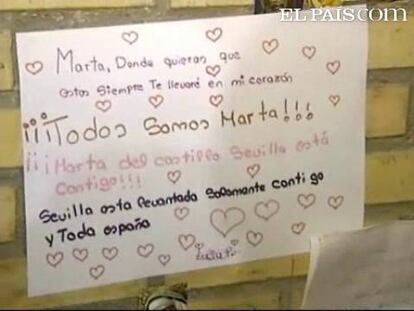 EL PAIS.COM
Marta, Donde quieras que
estes Siempre Te llevaré en mi corazón
¡¡¡Todos Somos Marta!!!
¡¡¡Marta del castillo Sevilla está
contigo!!!
Sevilla esta levantada Solamente contigo
y Toda españa